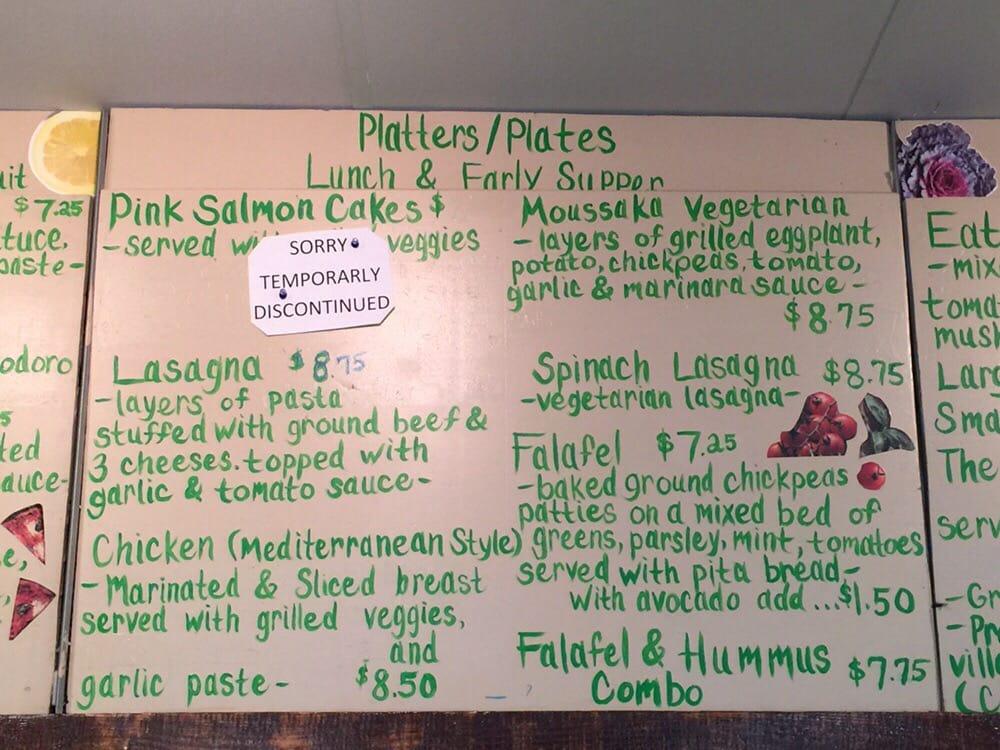 Platters/Plates
Lunch & Early Supper
Pink Salmon Cakes $
-served veggies
SORRY
TEMPORARLY
DISCONTINUED
Lasagna $8.75
-layers of pasta
stuffed with ground beef &
3 cheeses.topped with
garlic & tomato sauce-
Chicken (Mediterranean Style)
-Marinated & Sliced breast
served with grilled veggies,
and
garlic paste- $8.50
Moussaka Vegetarian
-layers of grilled eggplant,
potato, chickpeas, tomato,
garlic & marinara sauce-
$8.75
Spinach Lasagna $8.75
-vegetarian lasagna-
Falafel $7.25
-baked ground chickpeas
patties on a mixed bed of
greens, parsley, mint, tomatoes
served with pita bread-
with avocado add...$1.50
Falafel & Hummus $7.75
Combo
$7.25
Eat
-mix
The